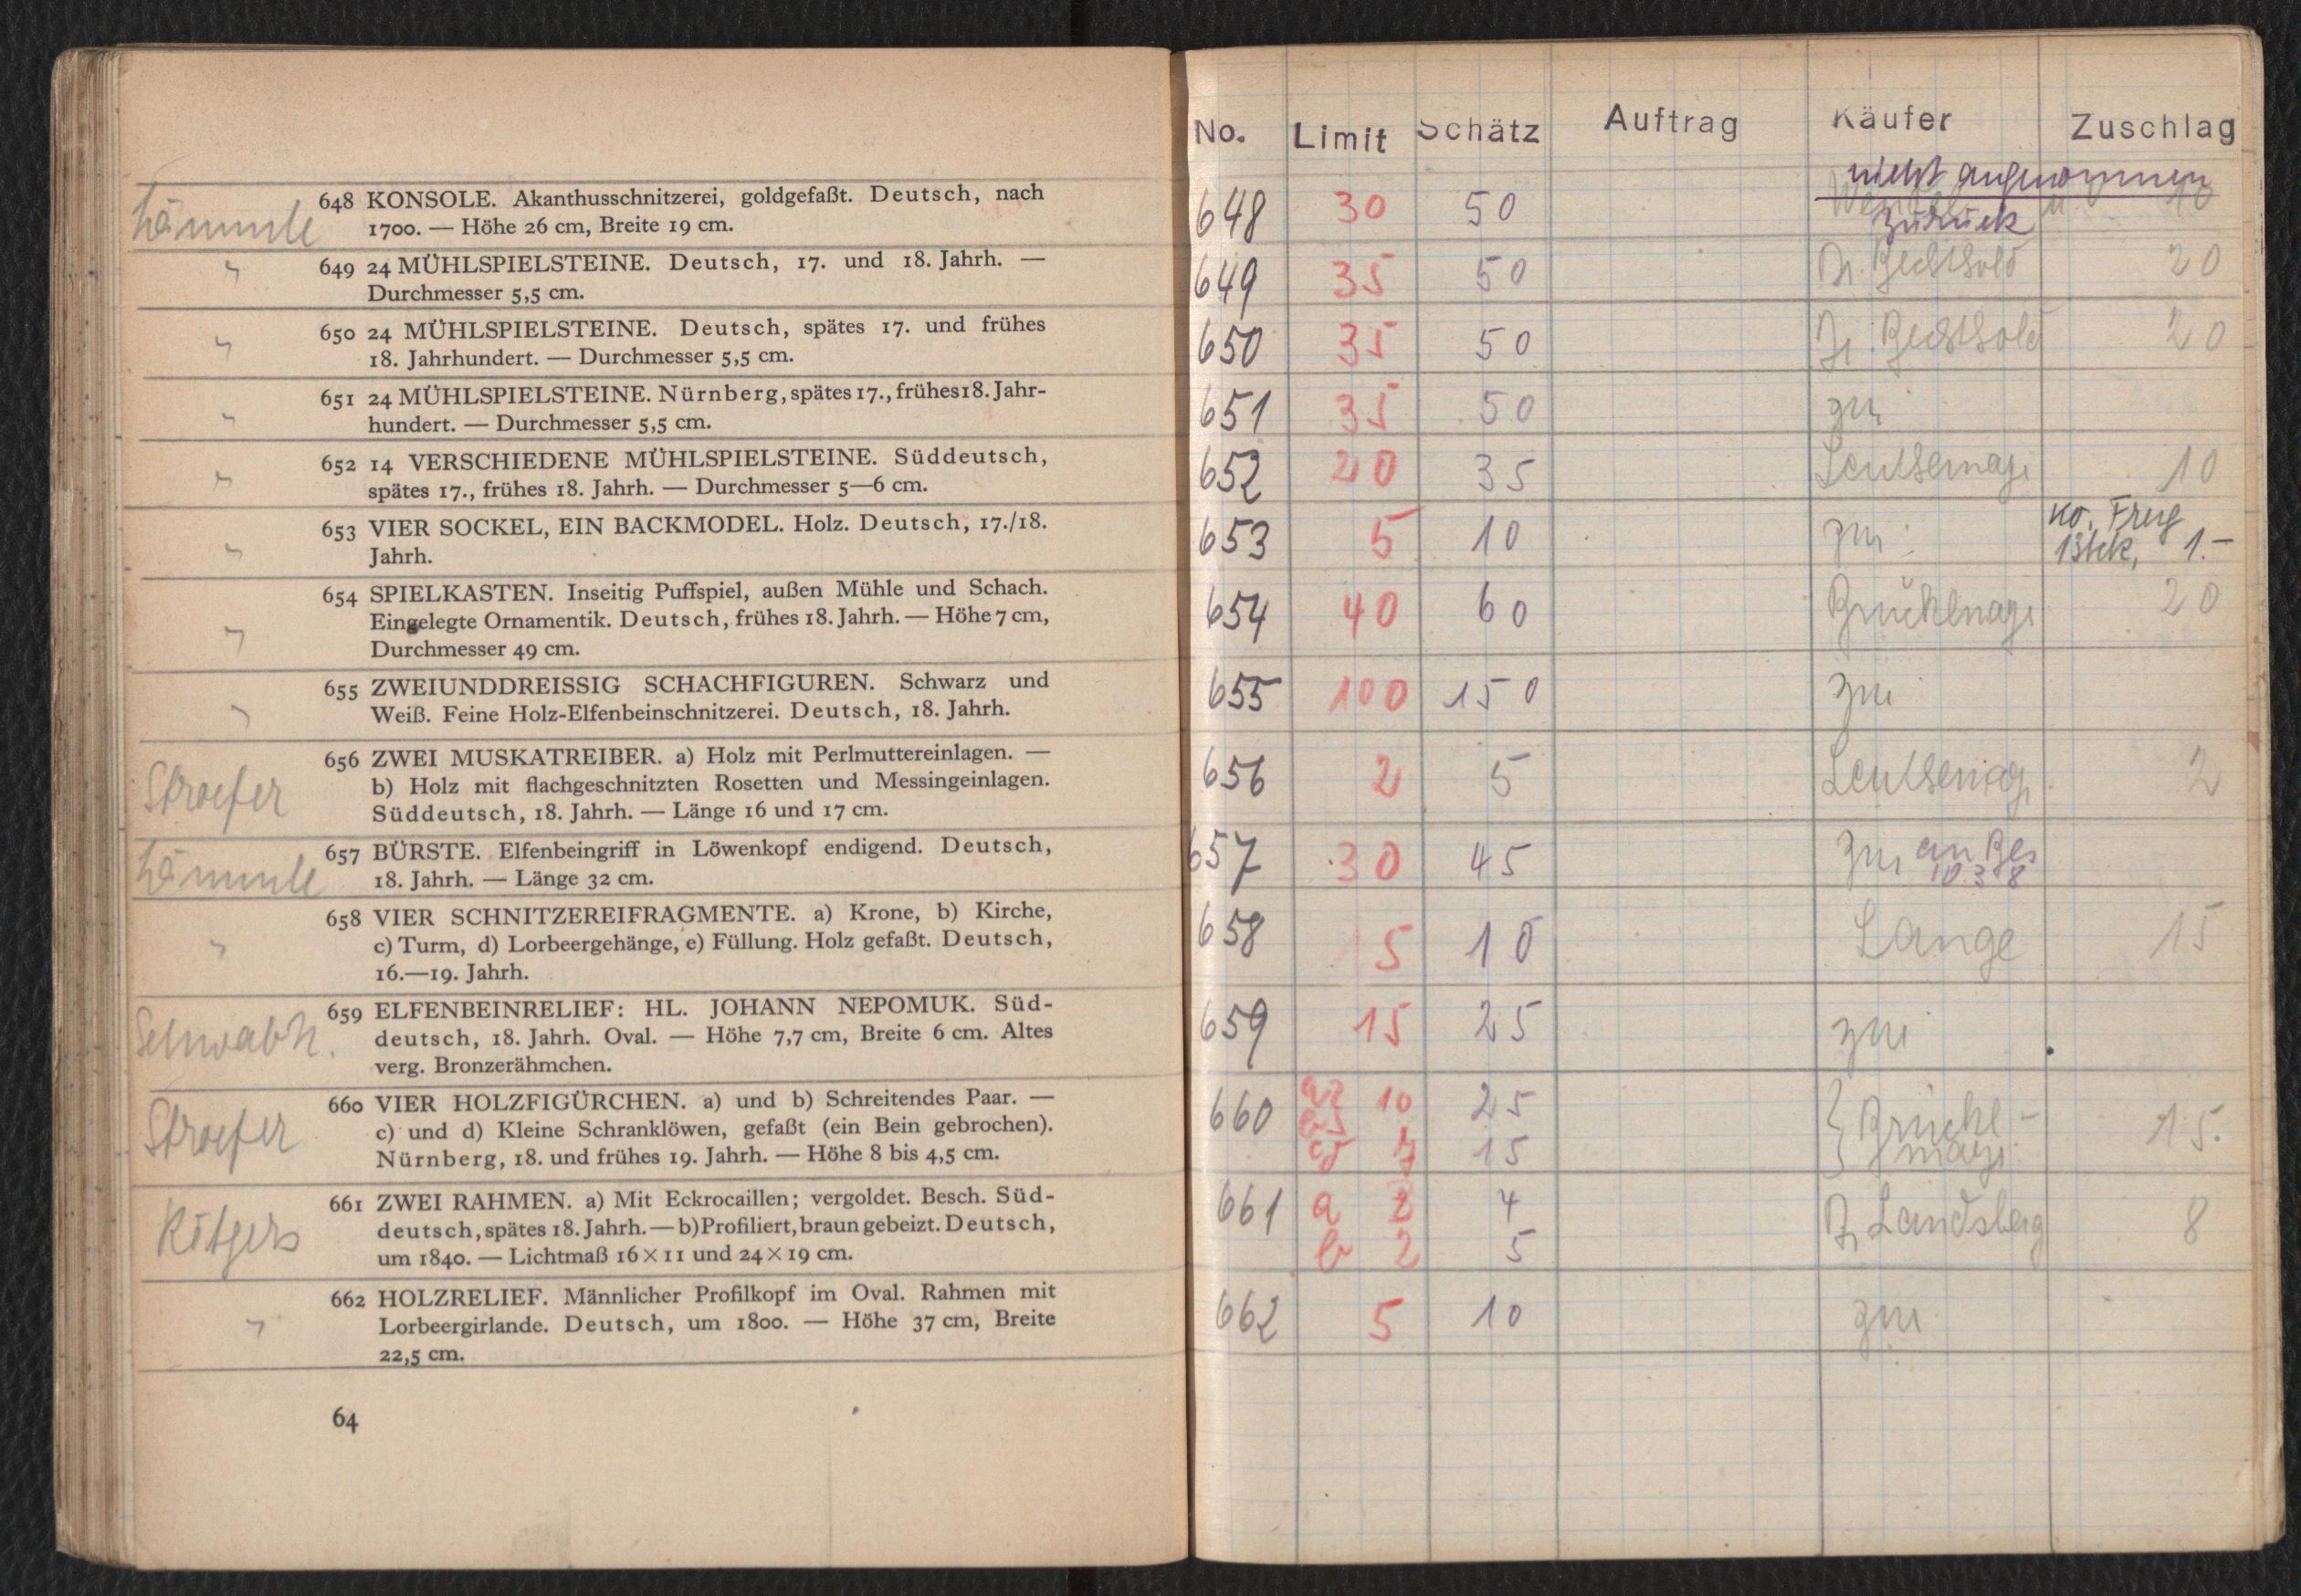 Lämmle
648 KONSOLE. Akanthusschnitzerei, goldgefaßt. Deutsch, nach
1700. — Höhe 26 cm, Breite 19 cm.
"
649 24 MÜHLSPIELSTEINE. Deutsch, 17. und 18. Jahrh. —
Durchmesser 5,5 cm.
"
650 24 MÜHLSPIELSTEINE. Deutsch, spätes 17. und frühes
18. Jahrhundert. — Durchmesser 5,5 cm.
"
651 24 MÜHLSPIELSTEINE. Nürnberg, spätes 17., frühes 18. Jahr-
hundert. — Durchmesser 5,5 cm.
"
652 14 VERSCHIEDENE MÜHLSPIELSTEINE. Süddeutsch,
spätes 17., frühes 18. Jahrh. — Durchmesser 5—6 cm.
"
653 VIER SOCKEL, EIN BACKMODEL. Holz. Deutsch, 17./18.
Jahrh.
"
654 SPIELKASTEN. Inseitig Puffspiel, außen Mühle und Schach.
Eingelegte Ornamentik. Deutsch, frühes 18. Jahrh. — Höhe 7 cm,
Durchmesser 49 cm.
"
655 ZWEIUNDDREISSIG SCHACHFIGUREN. Schwarz und
Weiß. Feine Holz-Elfenbeinschnitzerei. Deutsch, 18. Jahrh.
"
Stroefer
656 ZWEI MUSKATREIBER. a) Holz mit Perlmuttereinlagen. —
b) Holz mit flachgeschnitzten Rosetten und Messingeinlagen.
Süddeutsch, 18. Jahrh. — Länge 16 und 17 cm.
Lämmle
657 BÜRSTE. Elfenbeingriff in Löwenkopf endigend. Deutsch,
18. Jahrh. — Länge 32 cm.
"
658 VIER SCHNITZEREIFRAGMENTE. a) Krone, b) Kirche,
c) Turm, d) Lorbeergehänge, e) Füllung. Holz gefaßt. Deutsch,
16.—19. Jahrh.
Schwabh.
659 ELFENBEINRELIEF: HL. JOHANN NEPOMUK. Süd-
deutsch, 18. Jahrh. Oval. — Höhe 7,7 cm, Breite 6 cm. Altes
verg. Bronzerähmchen.
Stroefer
660 VIER HOLZFIGÜRCHEN. a) und b) Schreitendes Paar. —
c) und d) Kleine Schranklöwen, gefaßt (ein Bein gebrochen).
Nürnberg, 18. und frühes 19. Jahrh. — Höhe 8 bis 4,5 cm.
Rötgers
661 ZWEI RAHMEN. a) Mit Eckrocaillen; vergoldet. Besch. Süd-
deutsch, spätes 18. Jahrh. — b) Profiliert, braun gebeizt. Deutsch,
um 1840. — Lichtmaß 16 × 11 und 24 × 19 cm.
"
662 HOLZRELIEF. Männlicher Profilkopf im Oval. Rahmen mit
Lorbeergirlande. Deutsch, um 1800. — Höhe 37 cm, Breite
22,5 cm.
64
No. Limit Schätz Auftrag Käufer Zuschlag
nicht angenommen
648 30 50 zurück 10
649 35 50 Bechthold 20
650 35 50 Bechthold 20
651 35 50 zur
652 20 35 10
653 5 10 zur
1 Stck, 1.-
654 40 60 20
655 100 150 zur
656 2 5 2
657 30 45 zur an Bes
10.3.8
658 5 10 Lange 15
659 15 25 zur
660 10 25 15.
15
661 a 2 4 Landsberg 8
b 2 5
662 5 10 zur